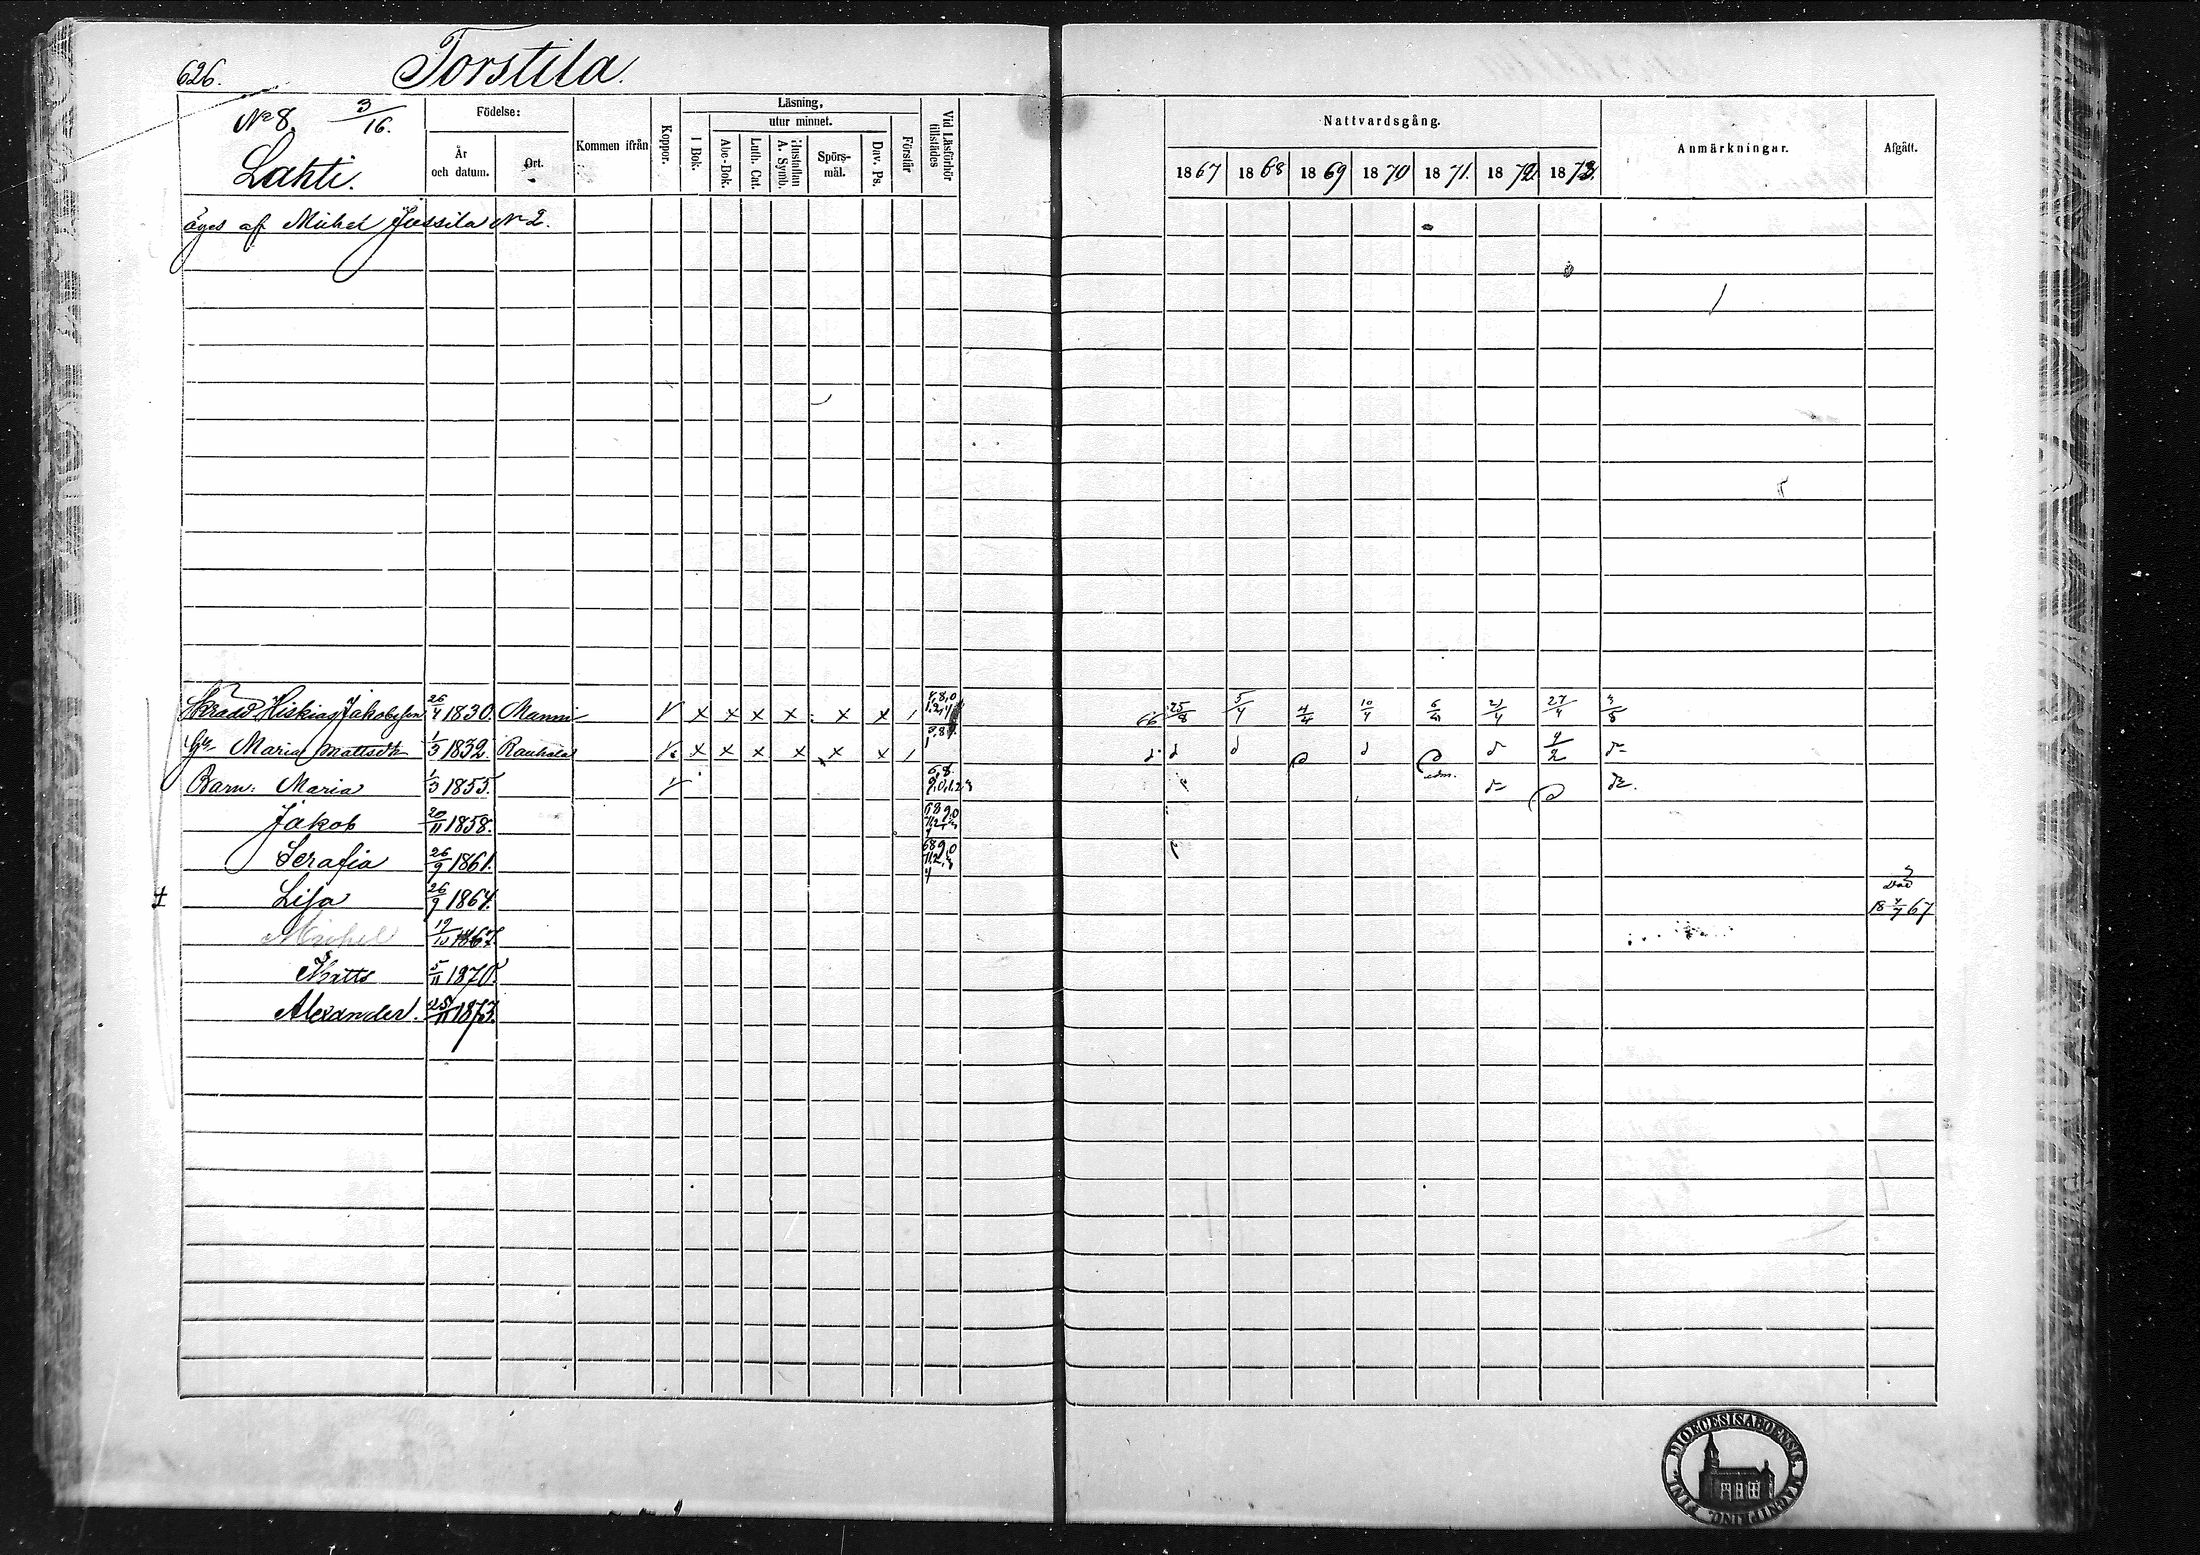 626. Torstila.
No 8. 3/16.
Lahti.
Födelse:
År och datum.
Ort.
Kommen ifrån
Koppor.
Läsning,
I Bok.
utur minnet.
Abc-Bok.
Luth. Cat.
Hustaflan A. Symb.
Spörs-mål.
Dav. Ps.
Förstår
Vid Läsförhör tillstädes
Nattvardsgång.
1867 1868 1869 1870 1871. 1872 1873.
Anmärkningar.
Afgått.
äges af Michel Jussila No 2.
Skradd. Hiskias Jakobsson 26/4 1830. Manni V x x x x x x / 66 25/8 5/4 4/4 10/4 6/4 21/4 27/4
Hu Maria Mattsdtr 1/3 1832. Rauhala x x x x x x / d d d d d 4/2 d
Barn: Maria 1/3 1855.
Jakob 20/11 1858.
Serafia 26/9 1861.
‡ Lisa 26/9 1864. Död 18 4/7 67
Michel 19/10 1867.
Matts 5/11 1870.
Alexander. 25/11 1873.
DIOECESIS ABOENSIS. MAGNI PRINC. FINL.